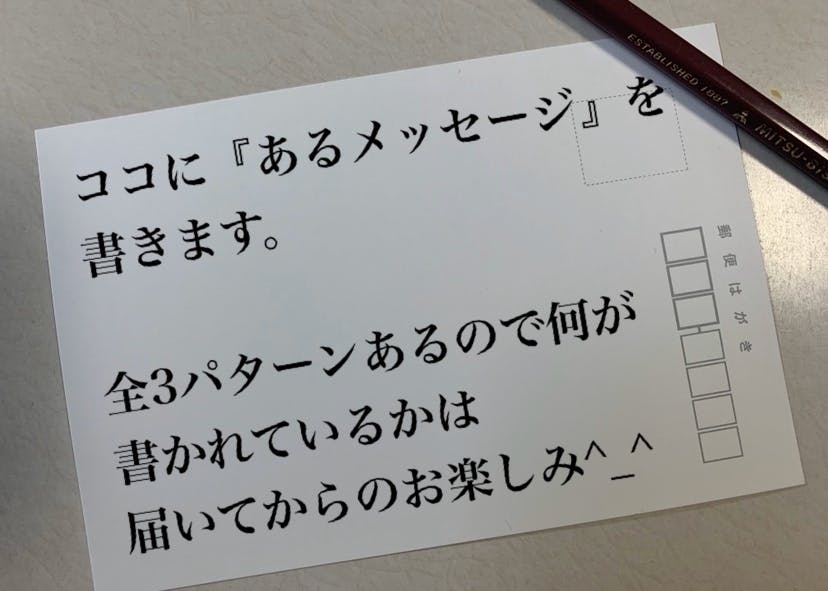 ココに『あるメッセージ』を
書きます。
全3パターンあるので何が
書かれているかは
届いてからのお楽しみ^_^
郵便はがき
ESTABLISHED 1887
MITSU-BIS